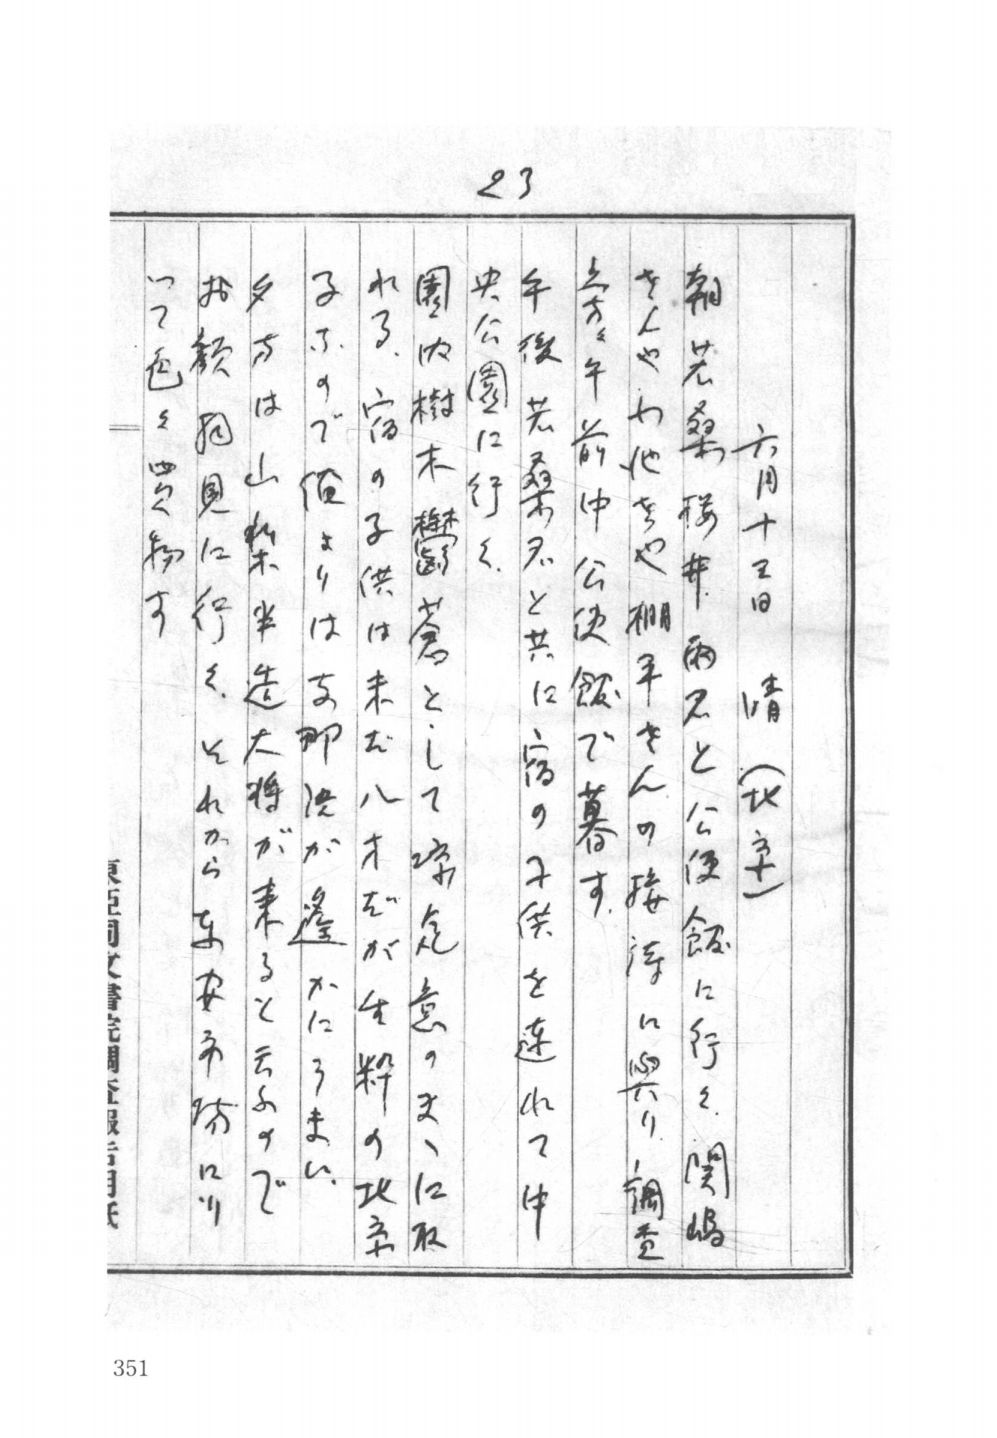 23
六月十三日 晴(北京)
朝若桑桜井両君と公使館に行く、関嶋
さんや小池さんや棚平さんの接待に與り調査
旁々午前中公使館で暮す、
午後若桑君と共に宿の子供を連れて中
央公園に行く、
園内樹木欝蒼として涼気意のまゝに取
れる、宿の子供は未だ八才だが生粋の北京
子なので俺よりは支那語が遙かにうまい、
夕方は山梨半造大将が来ると云ふので
お顔拝見に行く、それから東安市場に行
って色々買物す
東亜同文書院調査報告用紙
351